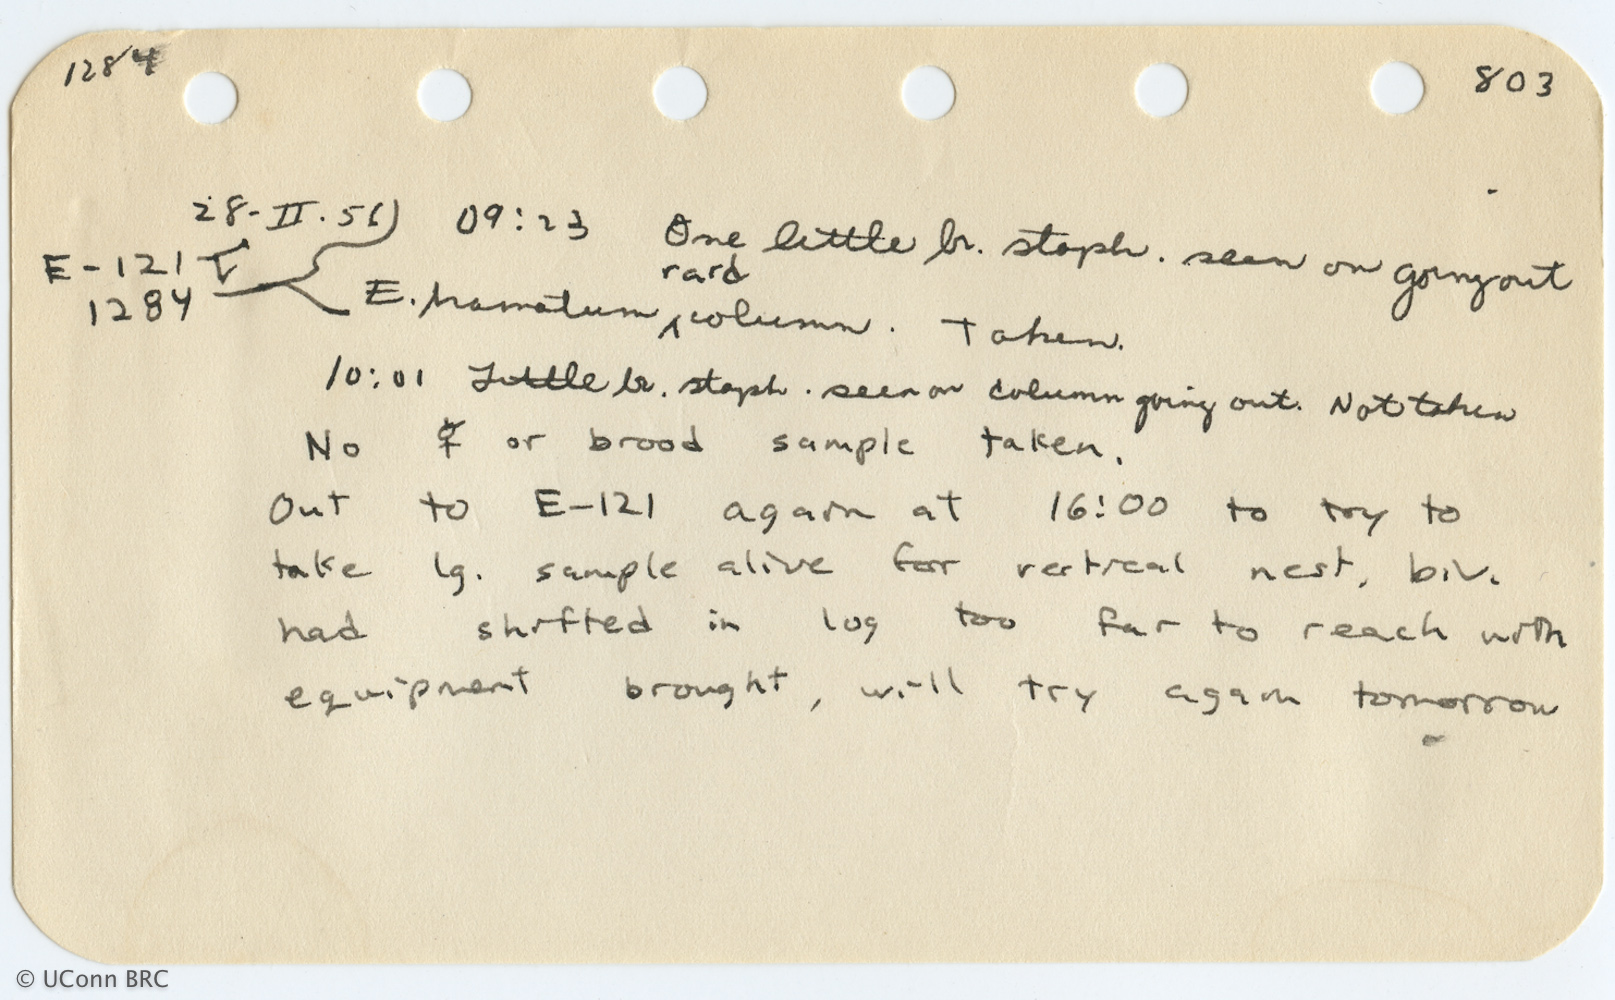 1284
803
28-II.56 09:23 One little br. staph. seen on going out
E-121
1284
raid
E. hamatum ^ column. Taken.
10:01 Little br. staph. seen on column going out. Not taken
No ☿ or brood sample taken.
Out to E-121 again at 16:00 to try to
take lg. sample alive for vertical nest, biv.
had shifted in log too far to reach with
equipment brought, will try again tomorrow
© UConn BRC